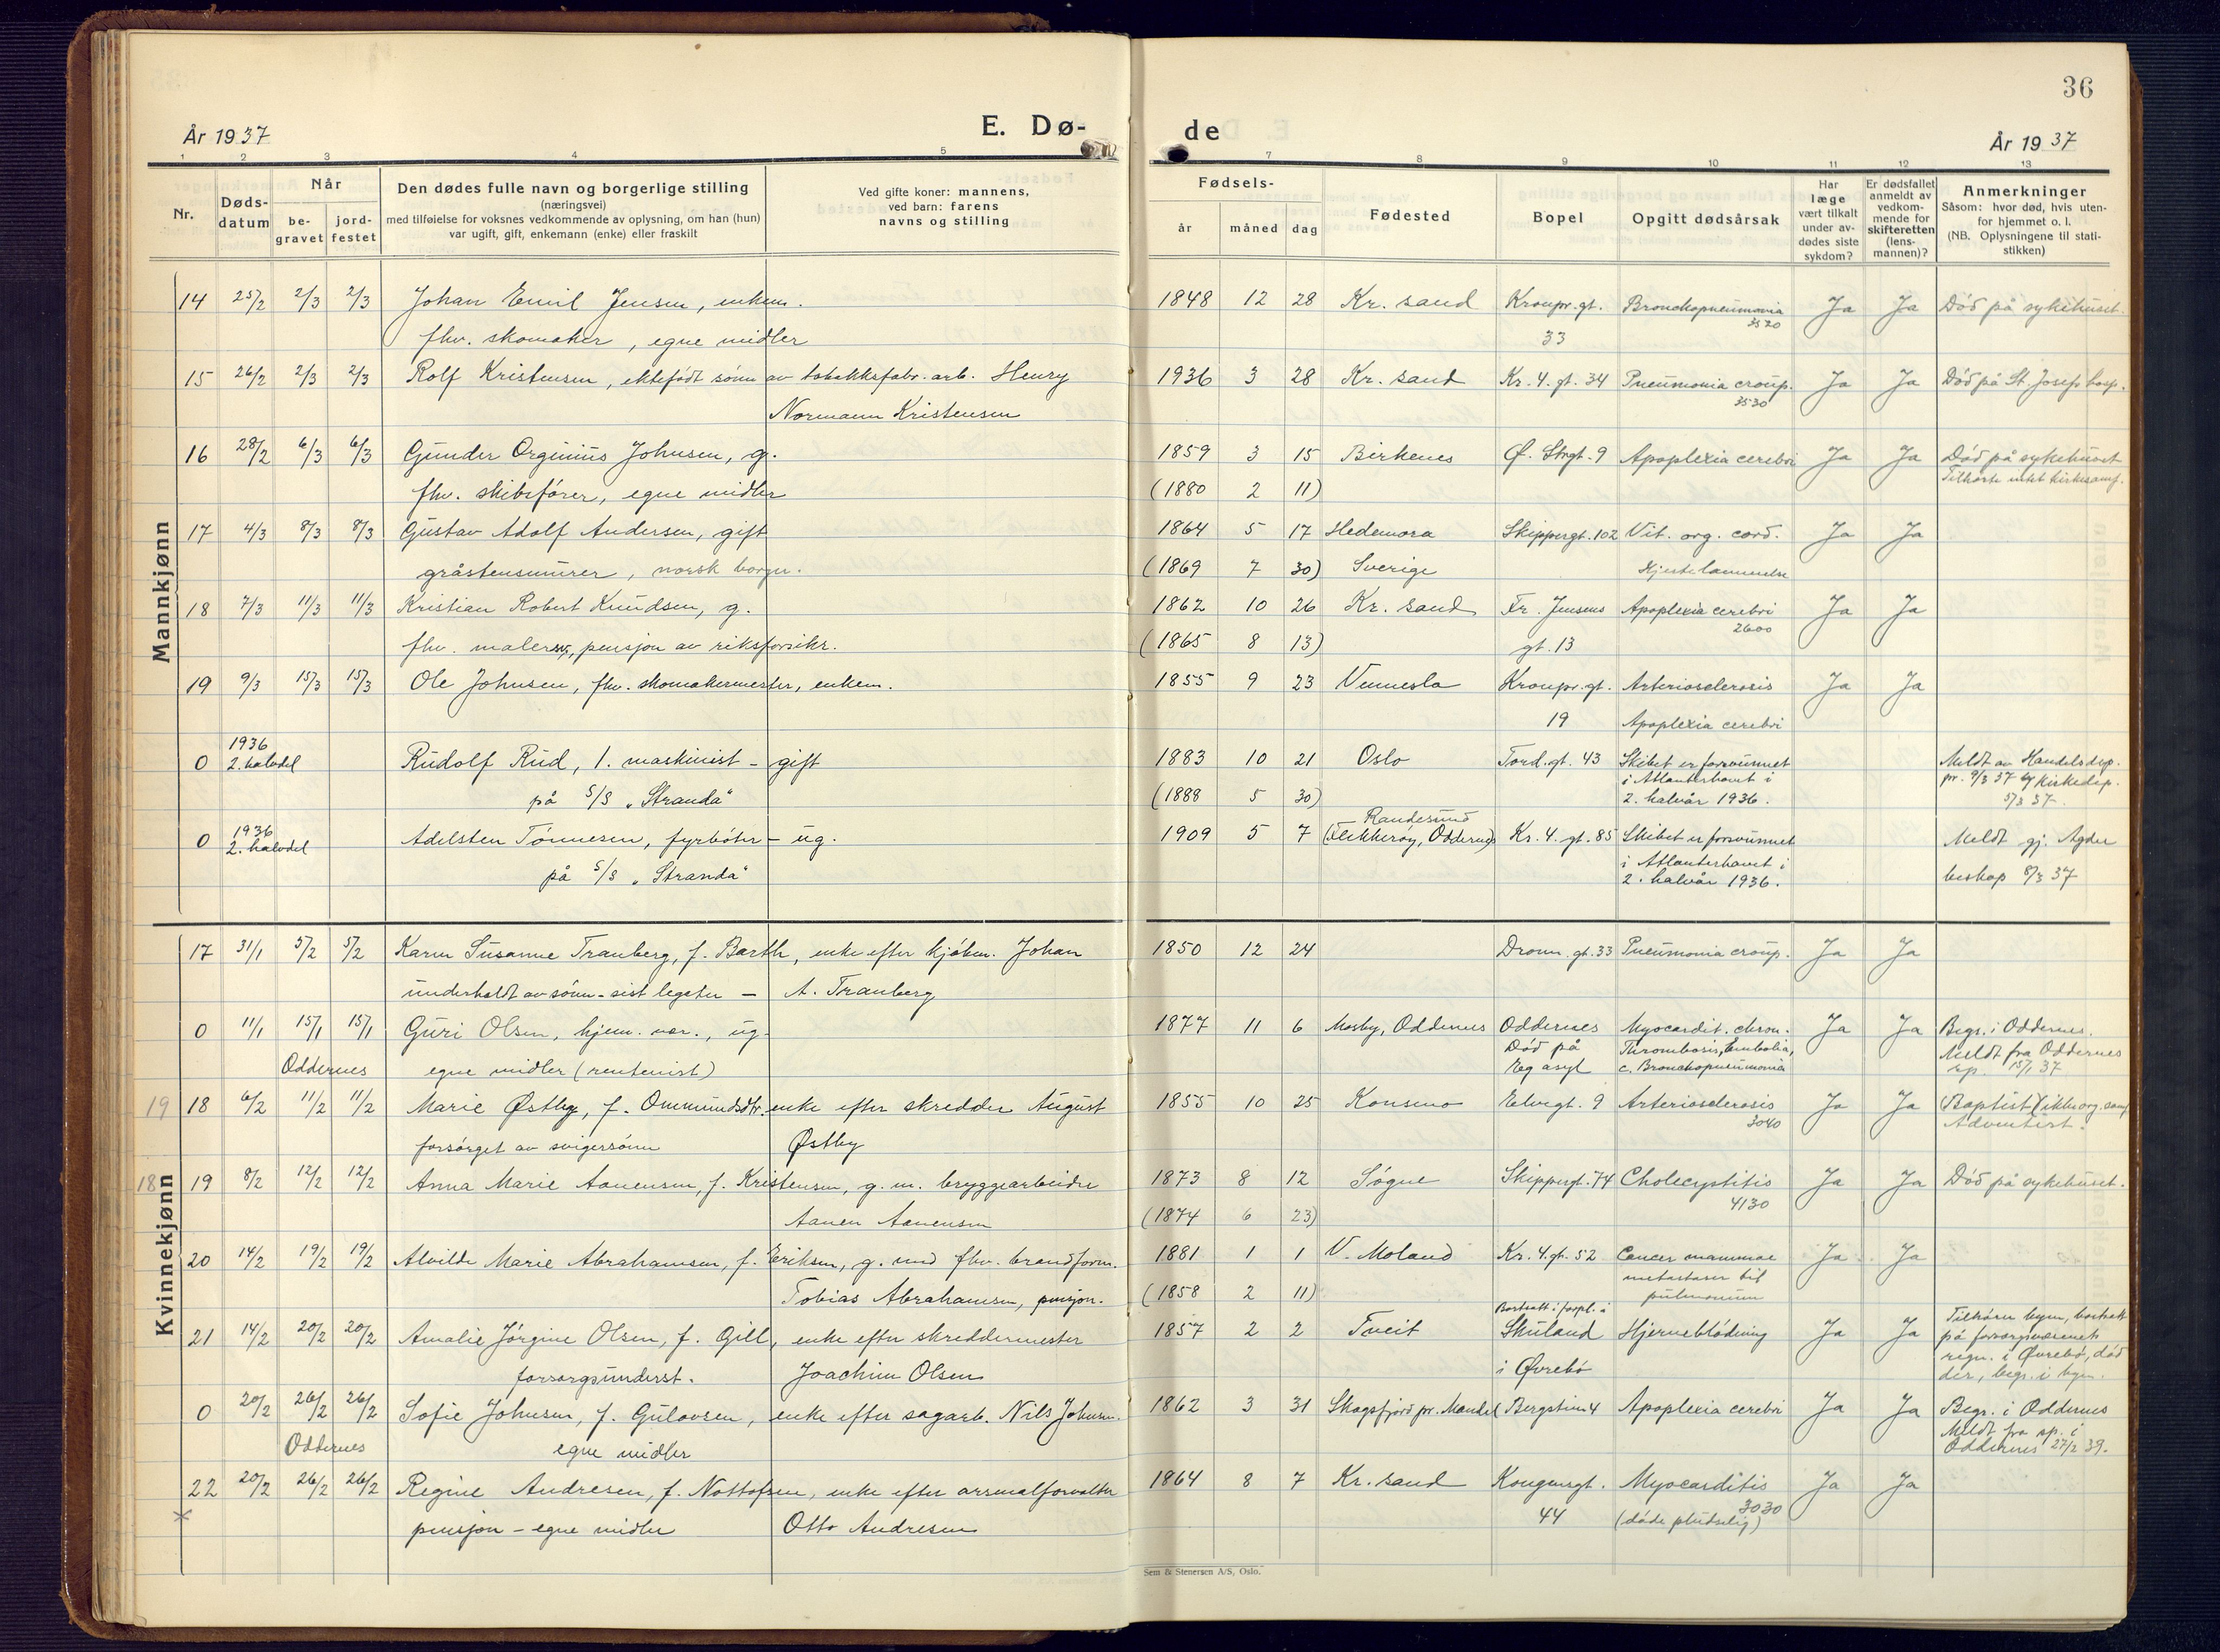 36
År 1937
E. Dø-
de
År 1937
1 2 3 4 5 7 8 9 10 11 12 13
Nr.
Døds-
datum
Når
be-
gravet
jord-
festet
Den dødes fulle navn og borgerlige stilling
(næringsvei)
med tilføielse for voksnes vedkommende av oplysning, om han (hun)
var ugift, gift, enkemann (enke) eller fraskilt
Ved gifte koner: mannens,
ved barn: farens
navns og stilling
Fødsels-
år måned dag
Fødested
Bopel
Opgitt dødsårsak
Har
læge
vært tilkalt
under av-
dødes siste
sykdom?
Er dødsfallet
anmeldt av
vedkom-
mende for
skifteretten
(lens-
mannen)?
Anmerkninger
Såsom: hvor død, hvis uten-
for hjemmet o. l.
(NB. Oplysningene til stati-
stikken)
Mannkjønn
14 25/2 2/3 2/3 Johan Emil Jensen, enkem. 1848 12 28 Kr. sand Kronpr. gt. Bronchopneumonia Ja Ja Død på sykehuset.
fhv. skomaker, egne midler 33 3520
15 26/2 2/3 2/3 Rolf Kristensen, ektefødt sønn av tobakksfabr. arb. Henry 1936 3 28 Kr. sand Kr. 4. gt. 34 Pneumonia croup. Ja Ja Død på St. Josefs hosp.
Normann Kristensen 3530
16 28/2 6/3 6/3 Gunder Orginius Johnsen, g. 1859 3 15 Birkenes Ø. Strgt. 9 Apoplexia cerebri Ja Ja Død på sykehuset
fhv. skibsfører, egne midler (1880 2 11) Tilhørte intet kirkesamf.
17 4/3 8/3 8/3 Gustav Adolf Andersen, gift 1864 5 17 Hedemora Skippergt. 102 Vit. org. cord. Ja Ja
gråstensmurer, norsk borger. (1869 7 30) Sverige Hjertelammelse
18 7/3 11/3 11/3 Kristian Robert Knudsen, g. 1862 10 26 Kr. sand Fr. Jensens Apoplexia cerebri Ja Ja
fhv. maler, pensjon av riksforsikr. (1865 8 13) gt. 13 2600
19 9/3 15/3 15/3 Ole Johnsen, fhv. skomakermester, enkem. 1855 9 23 Vennesla Kronpr. gt. Arteriosclerosis Ja Ja
19 Apoplexia cerebri
0 1936 2. halvdel Rudolf Rud, 1. maskinist - gift 1883 10 21 Oslo Tord. gt. 43 Skibet er forsvunnet Meldt av Handelsdep.
i Atlanterhavet i pr. 9/3 37 og Kirkedep.
på S/S "Stranda" (1888 5 30) 2. halvår 1936. 5/3 37.
0 1936 2. halvdel Adelsten Tønnesen, fyrbøter - ug. 1909 5 7 Randesund (Flekkerøy, Oddernes) Kr. 4. gt. 85 Skibet er forsvunnet Meldt gj. Agder
i Atlanterhavet i
på S/S "Stranda" 2. halvår 1936. biskop 8/3 37
Kvinnekjønn
17 31/1 5/2 5/2 Karen Susanne Tranberg, f. Barth, enke efter kjøbm. Johan 1850 12 24 Dronn. gt. 33 Pneumonia croup. Ja Ja
underholdt av sønn - sist legater - A. Tranberg
0 11/1 15/1 15/1 Guri Olsen, hjem. vær., ug. 1877 11 6 Mosby, Oddernes Oddernes Myocardit. chron. Ja Ja Begr. i Oddernes.
Død på Thrombosis, Embolia, Meldt fra Oddernes
Oddernes egne midler (rentenist) Eg asyl c. Bronchopneumonia sp. 15/1 37
19 18 6/2 11/2 11/2 Marie Østby, f. Ommundsdtr. enke efter skredder August 1855 10 25 Konsmo Elvegt. 9 Arteriosclerosis Ja Ja (Baptist) (ikke org. samf.
forsørget av svigersønn Østby 3040 Adventist.
18 19 8/2 12/2 12/2 Anna Marie Aanensen, f. Kristensen, g. m. bryggearbeider 1873 8 12 Søgne Skippergt. 74 Cholecystitis Ja Ja Død på sykehuset.
Aanen Aanensen (1874 6 23) 4130
20 14/2 19/2 19/2 Alvilde Marie Abrahamsen, f. Eriksen, g. med fhv. brandform. 1881 1 1 V. Moland Kr. 4. gt. 52 Cancer mammae Ja Ja
metastaser til
Tobias Abrahamsen, pensjon. (1858 2 11) pulmonum
21 14/2 20/2 20/2 Amalie Jørgine Olsen, f. Gill, enke efter skreddermester 1857 2 2 Tveit Bortsatt i forpl. i Skuland Hjerneblødning Ja Ja Tilhører byen, bortsatt
på forsorgsvæsenets
regn. i Øvrebø, død
forsorgsunderst. Joachim Olsen i Øvrebø der, begr. i byen.
0 20/2 26/2 26/2 Sofie Johnsen, f. Gulovsen, enke efter sagarb. Nils Johnsen. 1862 3 31 Skogsfjord pr. Mandal Bergstien 4 Apoplexia cerebri Ja Ja Begr. i Oddernes
Meldt fra sp. i
Oddernes egne midler Oddernes 27/2 39.
22 20/2 26/2 26/2 Regine Andresen, f. Nottofsen, enke efter arsenalforvalter 1864 8 7 Kr. sand Kongensgt. Myocarditis Ja Ja
3030
pensjon - egne midler Otto Andresen 44 (døde pludselig)
Sem & Stenersen A/S, Oslo.